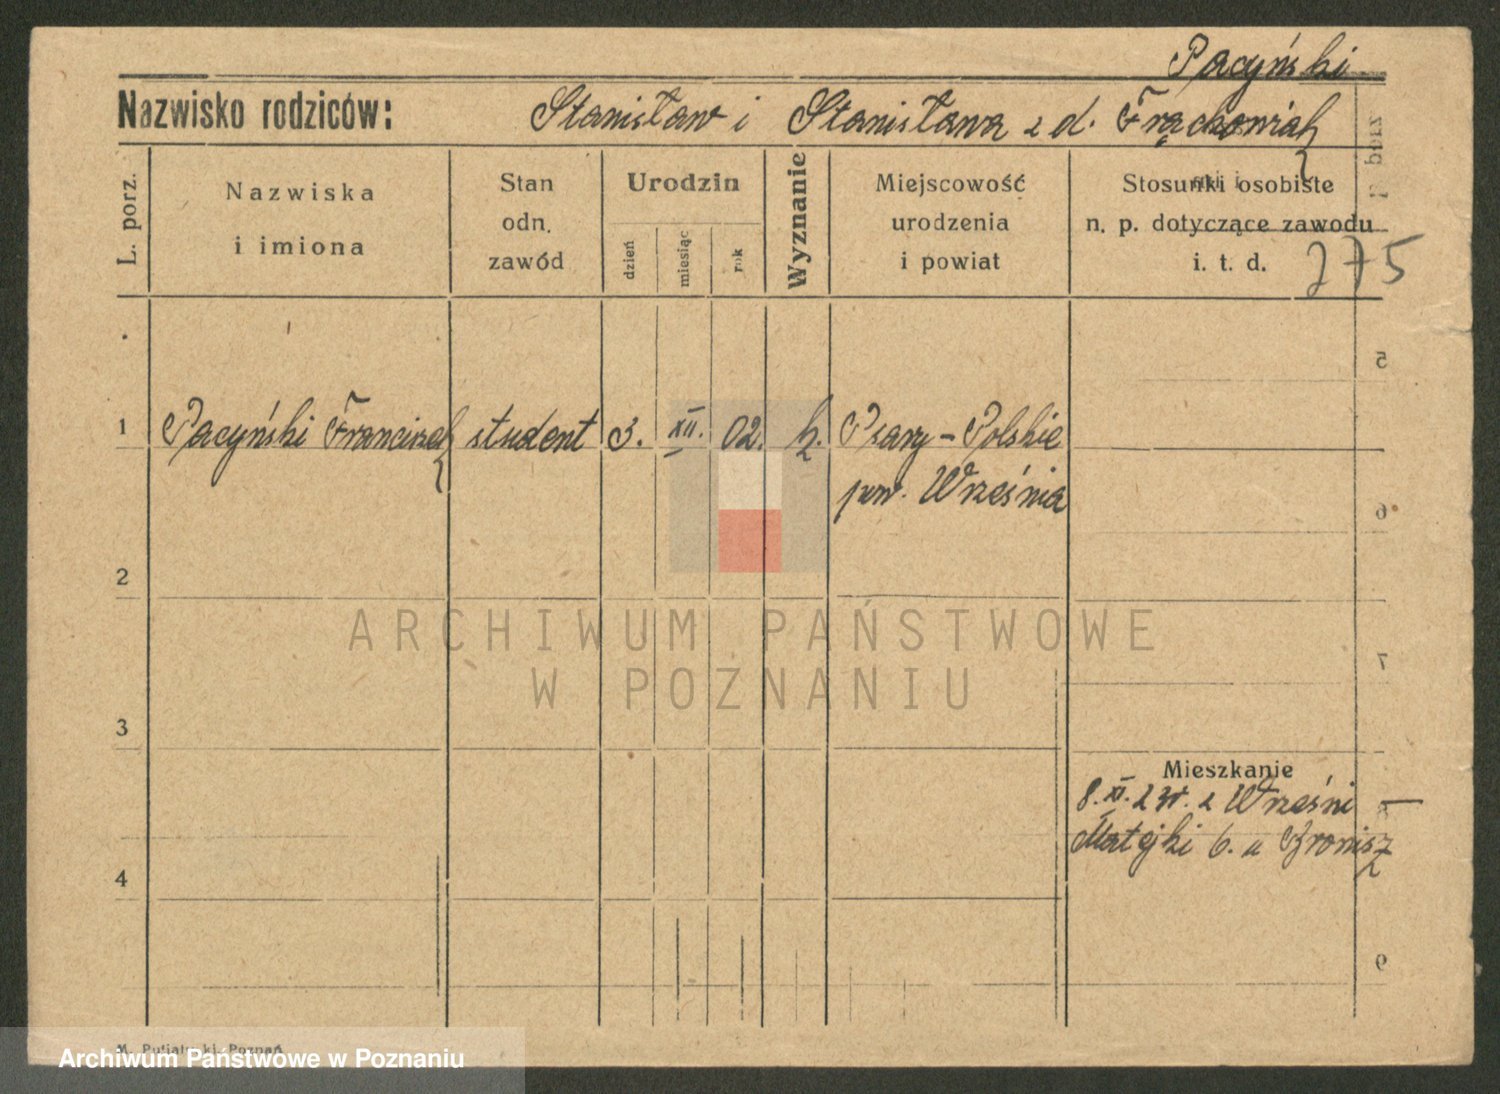 Pacyński
Nazwisko rodziców: Stanisław i Stanisława z d. Frąckowiak
L. porz.
Nazwiska
i imiona
Stan
odn.
zawód
Urodzin
dzień
miesiąc
rok
Wyznanie
Miejscowość
urodzenia
i powiat
Stosunki osobiste
n. p. dotyczące zawodu
i. t. d.
275
1 Pacyński Franciszek student 3. XII. 02. k. Psary-Polskie
pow. Września
2
3
4
5
6
7
9
ARCHIWUM PAŃSTWOWE
W POZNANIU
Mieszkanie
8. XI. 23r. z Wrześni –
Matejki 6. u Bronisz
Poznań
Archiwum Państwowe w Poznaniu